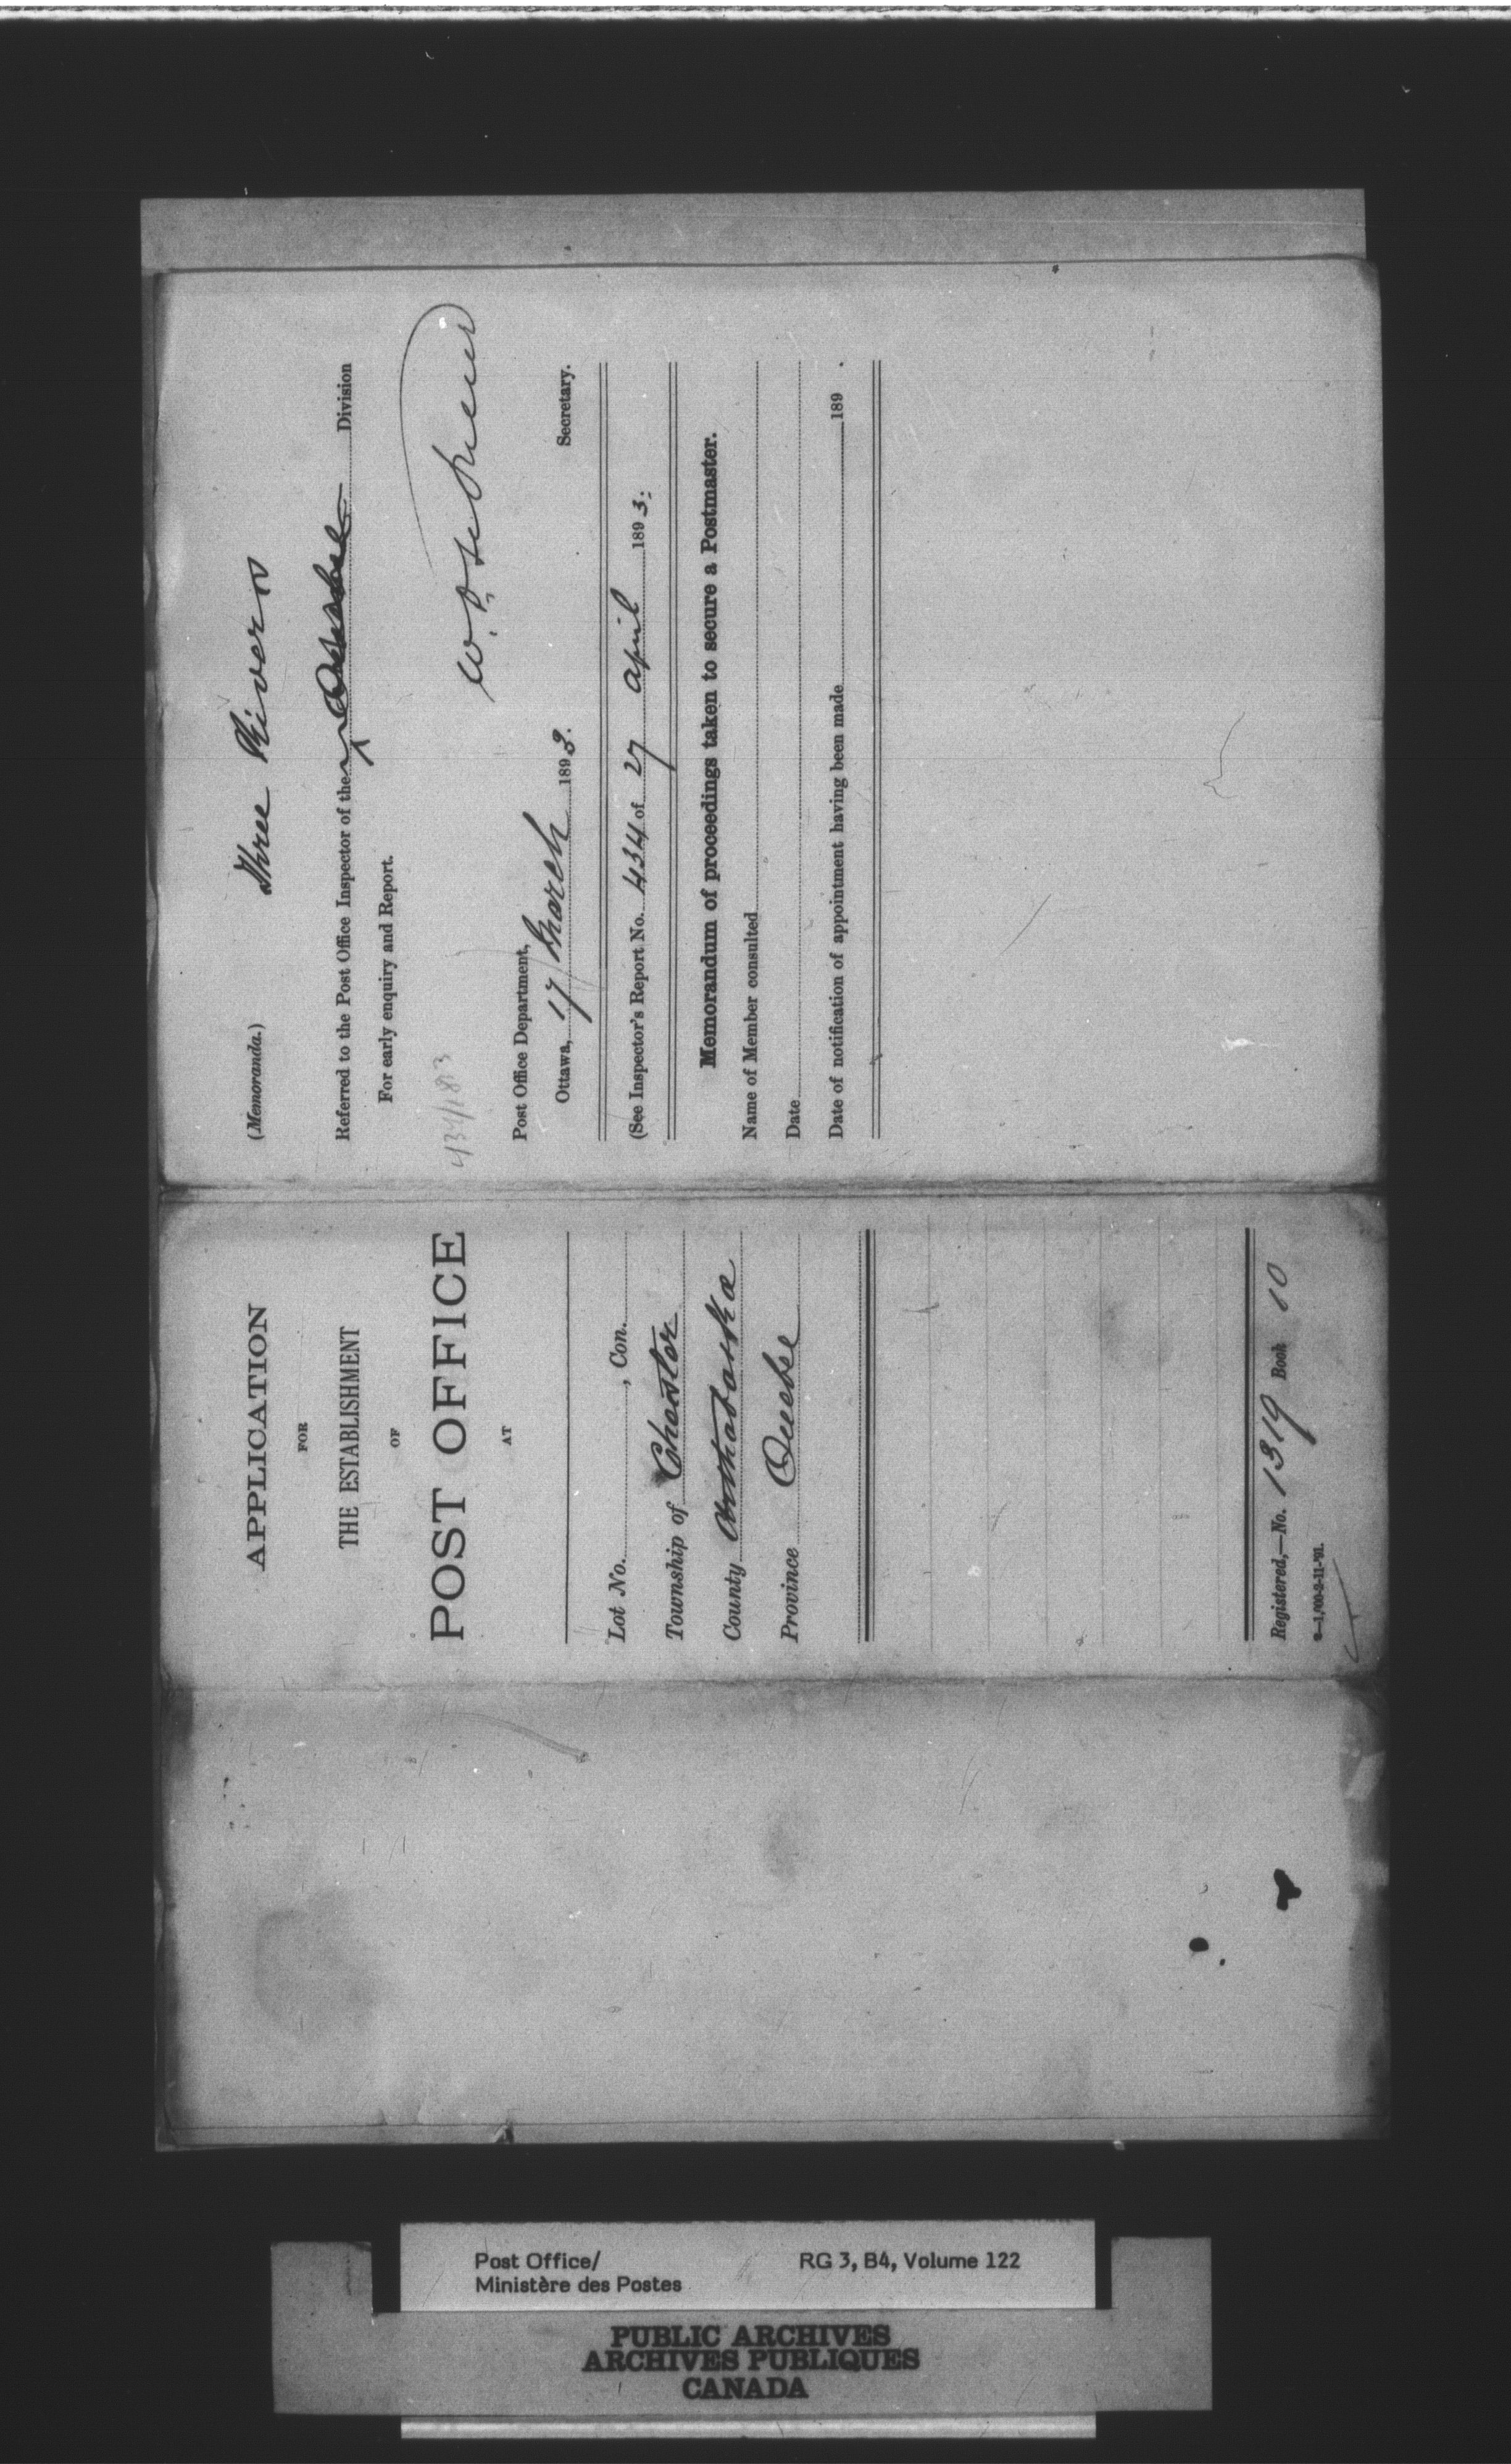 APPLICATION
FOR
THE ESTABLISHMENT
OF
POST OFFICE
AT
Lot No. , Con.
Township of Chester
County Arthabaska
Province Quebec
Registered,—No. 1319 Book 10
2—1,'00-2-11-'91.
(Memoranda.) Three Rivers
Referred to the Post Office Inspector of the Quebec Division
For early enquiry and Report.
434/1893
Post Office Department,
Ottawa, 17 March 1893.
Secretary.
(See Inspector's Report No. 434 of 27 April 1893.
Memorandum of proceedings taken to secure a Postmaster.
Name of Member consulted
Date
Date of notification of appointment having been made 189 .
Post Office/ RG 3, B4, Volume 122
Ministère des Postes
PUBLIC ARCHIVES
ARCHIVES PUBLIQUES
CANADA